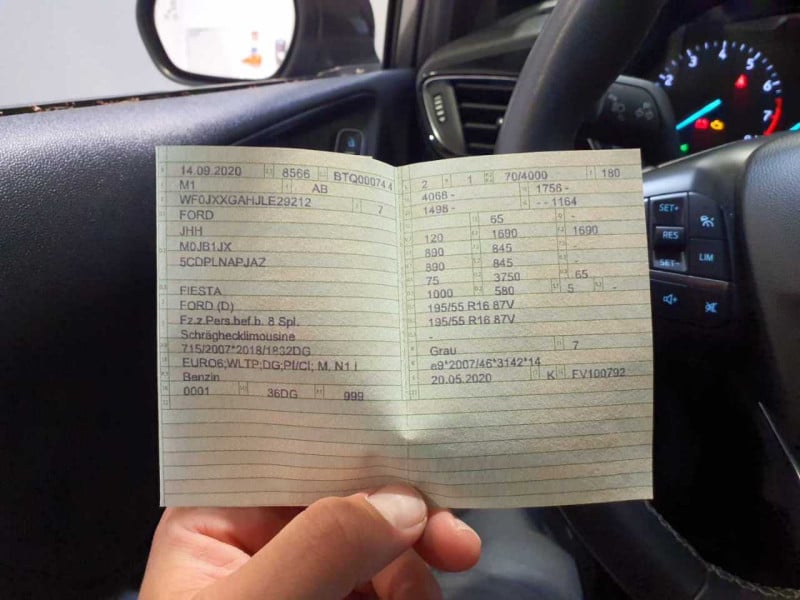 14.09.2020 8566 BTQ00074 4
M1 AB
WF0JXXGAHJLE29212 7
FORD
JHH
M0JB1JX
5CDPLNAPJAZ
FIESTA
FORD (D)
Fz.z.Pers.bef.b. 8 Spl.
Schräghecklimousine
715/2007*2018/1832DG
EURO6;WLTP;DG;PI/CI; M, N1 I
Benzin
0001 36DG 999
2 1 70/4000 180
4068 - 1756 -
1498 - - - 1164
65 -
120 1690 1690
890 845 -
890 845 -
75 3750 65
1000 580 5 -
195/55 R16 87V
195/55 R16 87V
-
Grau 7
e9*2007/46*3142*14
20.05.2020 K FV100792
2 3 4 5 6 7
SET+
RES
SET-
LIM